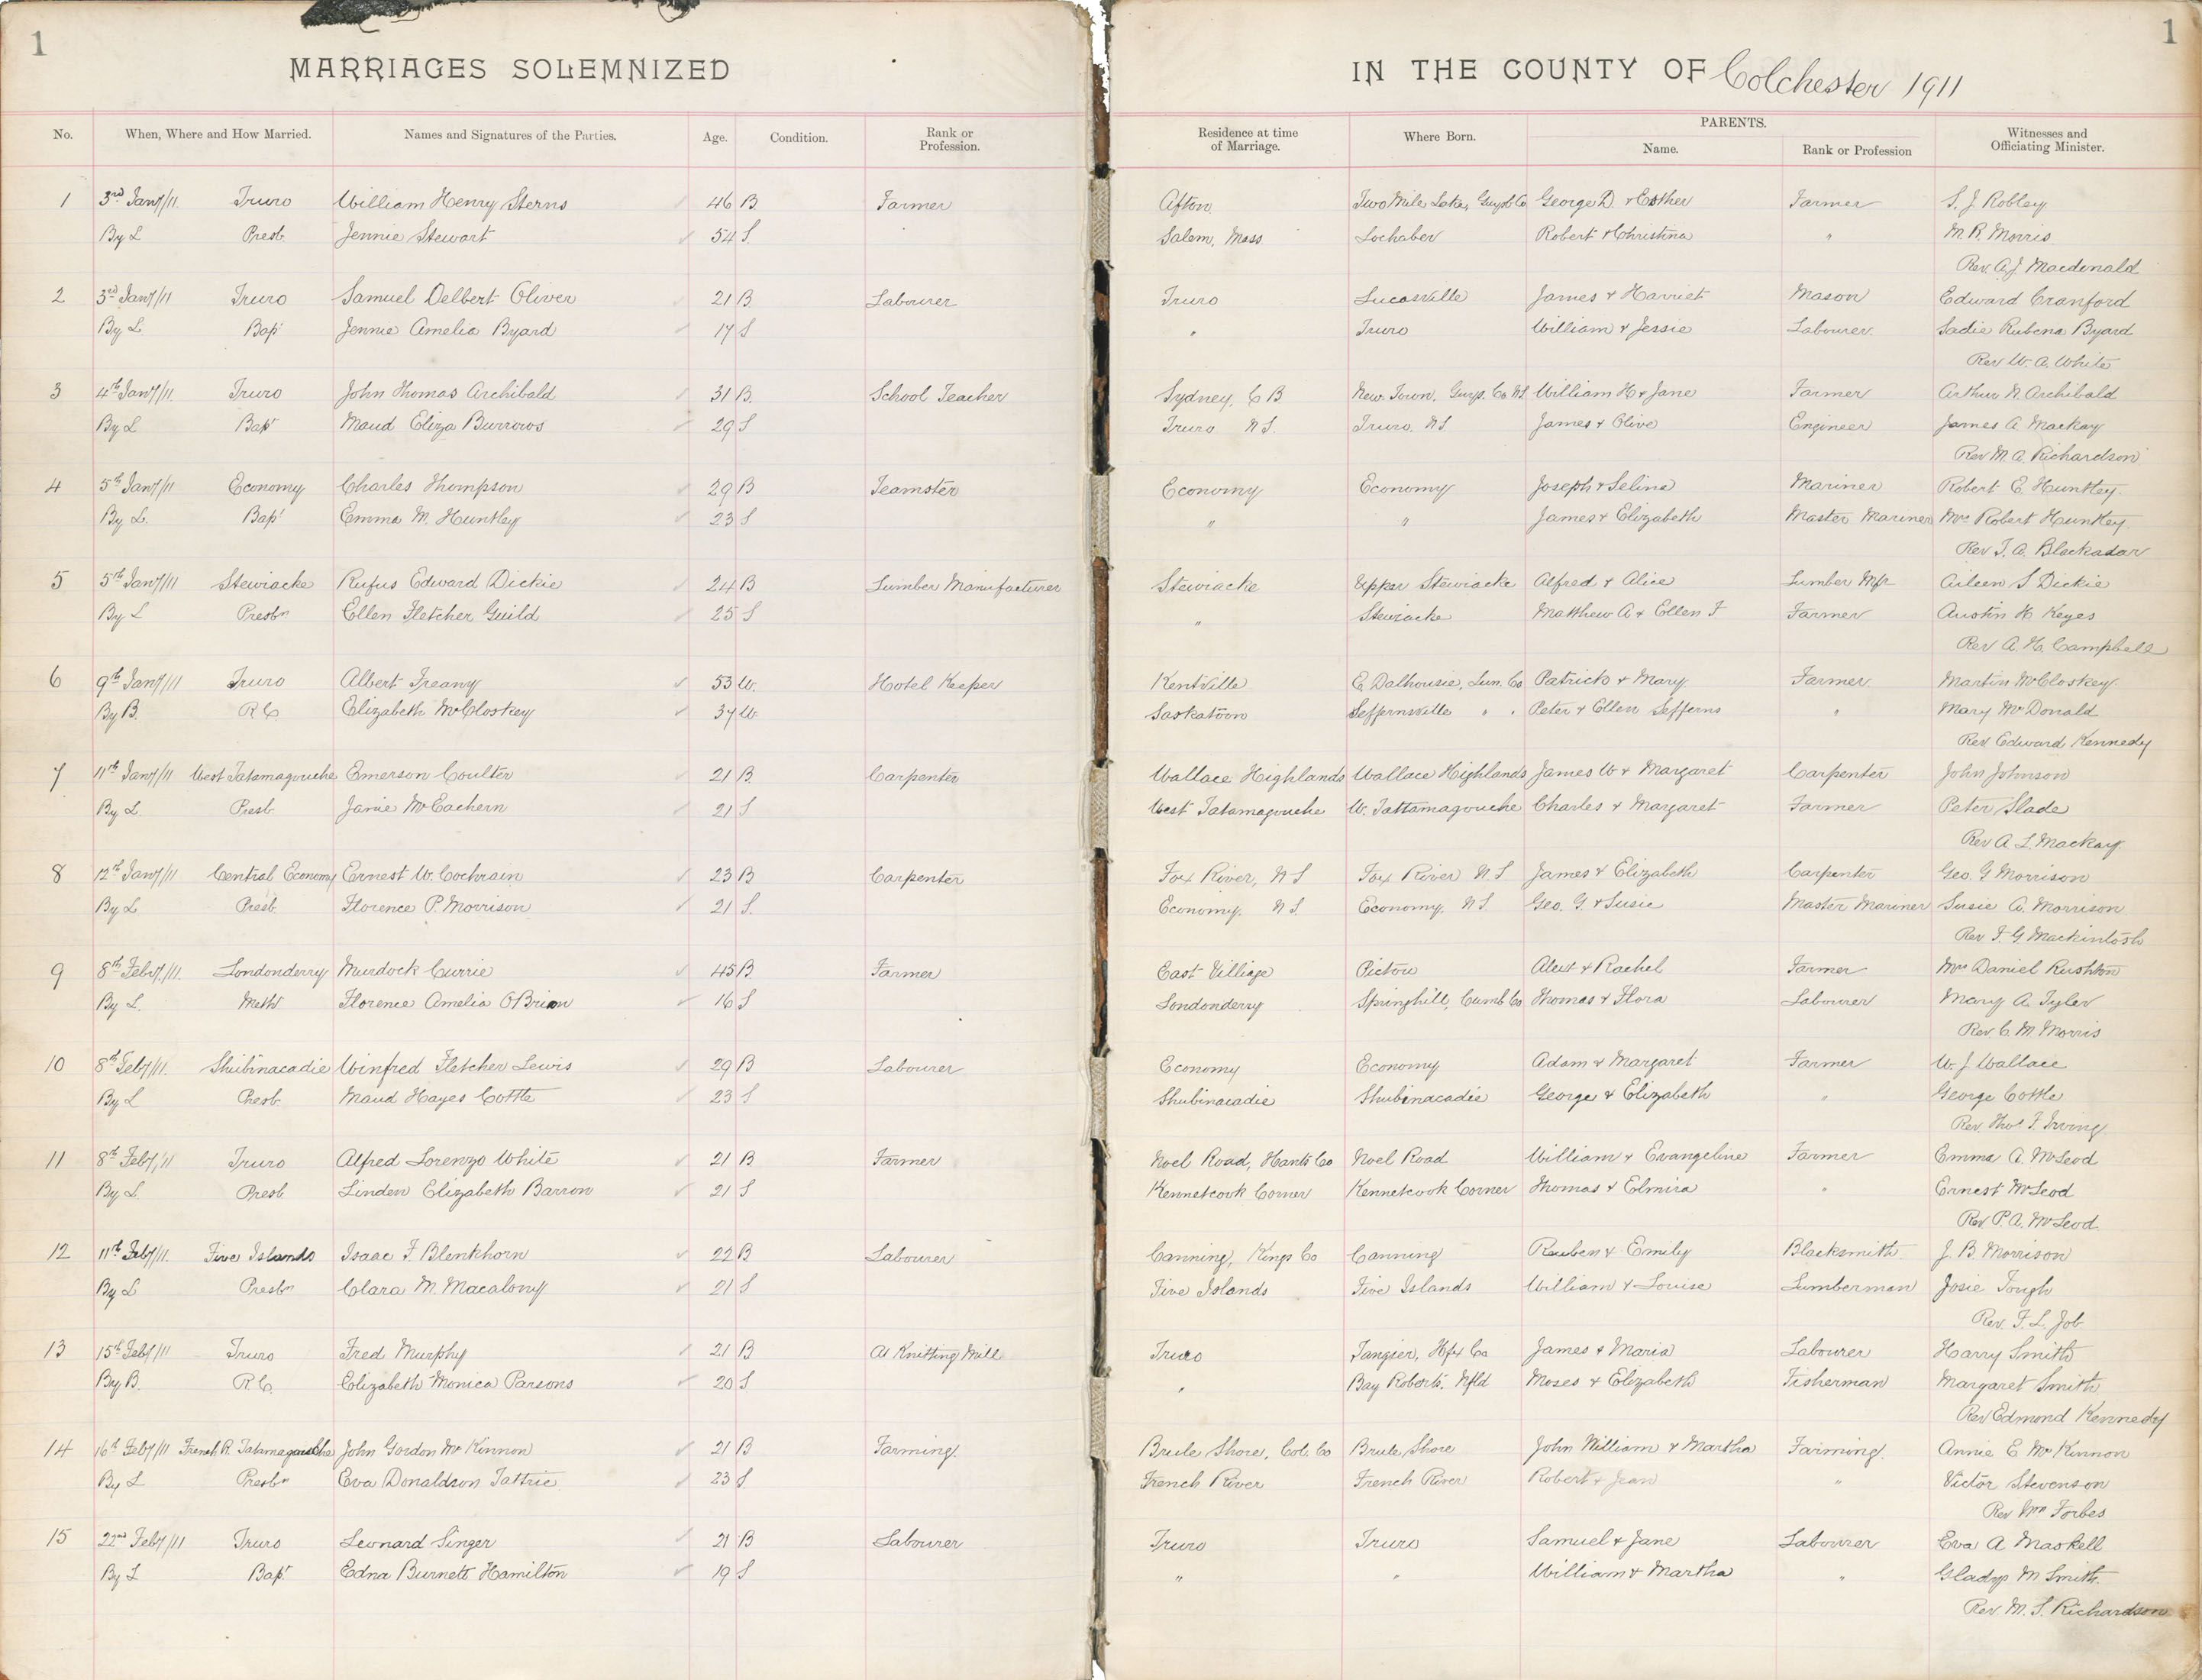 1
1
MARRIAGES SOLEMNIZED IN THE COUNTY OF Colchester 1911
No. When, Where and How Married. Names and Signatures of the Parties. Age. Condition. Rank or Profession. Residence at time of Marriage. Where Born. PARENTS. Name. Rank or Profession Witnesses and Officiating Minister.
1 3rd Jany/11. Truro William Henry Sterns 46 B Farmer Afton Two Mile Lake, Guysb Co George D. & Esther Farmer S. J. Robley
By L Presb. Jennie Stewart 54 S. Salem, Mass Lochaber Robert & Christina " M. R. Morris
Rev. A. J. Macdonald
2 3rd Jany/11 Truro Samuel Delbert Oliver 21 B Labourer Truro Lucasville James & Harriet Mason Edward Cranford
By L Bapt Jennie Amelia Byard 17 S " Truro William & Jessie Labourer Sadie Rubena Byard
Rev W. A. White
3 4th Jany/11 Truro John Thomas Archibald 31 B. School Teacher Sydney, C B New Town, Guys. Co NS William H & Jane Farmer Arthur N. Archibald
By L Bapt Maud Eliza Burrows 29 S Truro NS. Truro, NS James & Olive Engineer James A. Mackay
Rev M. A. Richardson
4 5th Jany/11 Economy Charles Thompson 29 B Teamster Economy Economy Joseph & Selina Mariner Robert E. Huntley.
By L. Bapt Emma M. Huntley 23 S " " James & Elizabeth Master Mariner Mrs Robert Huntley.
Rev T. A. Blackadar
5 5th Jany/11 Stewiacke Rufus Edward Dickie 24 B Lumber Manufacturer Stewiacke Upper Stewiacke Alfred & Alice Lumber Mfr Aileen S Dickie
By L Presbn Ellen Fletcher Guild 25 S " Stewiacke Matthew A & Ellen F Farmer Austin H Keyes
Rev A. H. Campbell
6 9th Jany/11 Truro Albert Treany 53 W. Hotel Keeper Kentville E. Dalhousie, Lun. Co Patrick & Mary Farmer Martin McCloskey
By B. R C Elizabeth McCloskey 37 W Saskatoon Seffernsville " " Peter & Ellen Sefferns " Mary McDonald
Rev Edward Kennedy
7 11th Jany/11 West Tatamagouche Emerson Coulter 21 B. Carpenter Wallace Highlands Wallace Highlands James W & Margaret Carpenter John Johnson
By L Presb. Janie McEachern 21 S West Tatamagouche W. Tattamagouche Charles & Margaret Farmer Peter Slade
Rev A L. Mackay
8 12th Jany/11 Central Economy Ernest W. Cochrain 23 B Carpenter Fox River, N S Fox River N. S James & Elizabeth Carpenter Geo. G Morrison
By L Presb. Florence P. Morrison 21 S. Economy. N S. Economy, N S. Geo. G. & Susie Master Mariner Susie A. Morrison
Rev. F. G Mackintosh
9 8th Feby/11. Londonderry Murdock Currie 45 B. Farmer East Village Pictou Alex & Rachel Farmer Mrs Daniel Rushton
By L. Meth. Florence Amelia O'Brien 16 S Londonderry Springhill, Cumb Co Thomas & Flora Labourer Mary A. Tyler
Rev C. M. Morris
10 8th Feby/11. Shubinacadie Winfred Fletcher Lewis 29 B Labourer Economy Economy Adam & Margaret Farmer W. J. Wallace
By L Presb. Maud Hayes Cottle 23 S Shubinacadie Shubinacadie George & Elizabeth " George Cottle
Rev. Thos. F. Irving
11 8th Feby/11 Truro Alfred Lorenzo White 21 B Farmer Noel Road, Hants Co Noel Road William & Evangeline Farmer Emma A. McLeod
By L. Presb Linden Elizabeth Barron 21 S Kennetcook Corner Kennetcook Corner Thomas & Elmira " Ernest McLeod
Rev P. A. McLeod.
12 11th Feby/11. Five Islands Isaac F. Blenkhorn 22 B Labourer Canning, Kings Co Canning Reuben & Emily Blacksmith J. B Morrison
By L Presbn Clara M. Macalony 21 S Five Islands Five Islands William & Louise Lumberman Josie Tough
Rev. F. L. Job
13 15th Feby/11 Truro Fred Murphy 21 B At Knitting Mill Truro Tangier, Hfx Co James & Maria Labourer Harry Smith
By B. R C. Elizabeth Monica Parsons 20 S " Bay Roberts. Nfld Moses & Elizabeth Fisherman Margaret Smith
Rev Edmond Kennedy
14 16th Feby/11 French R. Tatamagouche John Gordon McKinnon 21 B Farming. Brule Shore, Col. Co Brule Shore John William & Martha Farming. Annie E McKinnon
By L Presbn Eva Donaldson Tattrie 23 S. French River French River Robert & Jean " Victor Stevenson
Rev Wm Forbes
15 22nd Feby/11 Truro Leonard Singer 21 B Labourer Truro Truro Samuel & Jane Labourer Eva A Maskell
By L Bapt. Edna Burnett Hamilton 19 S " " William & Martha " Gladys M Smith.
Rev. M. S. Richardson